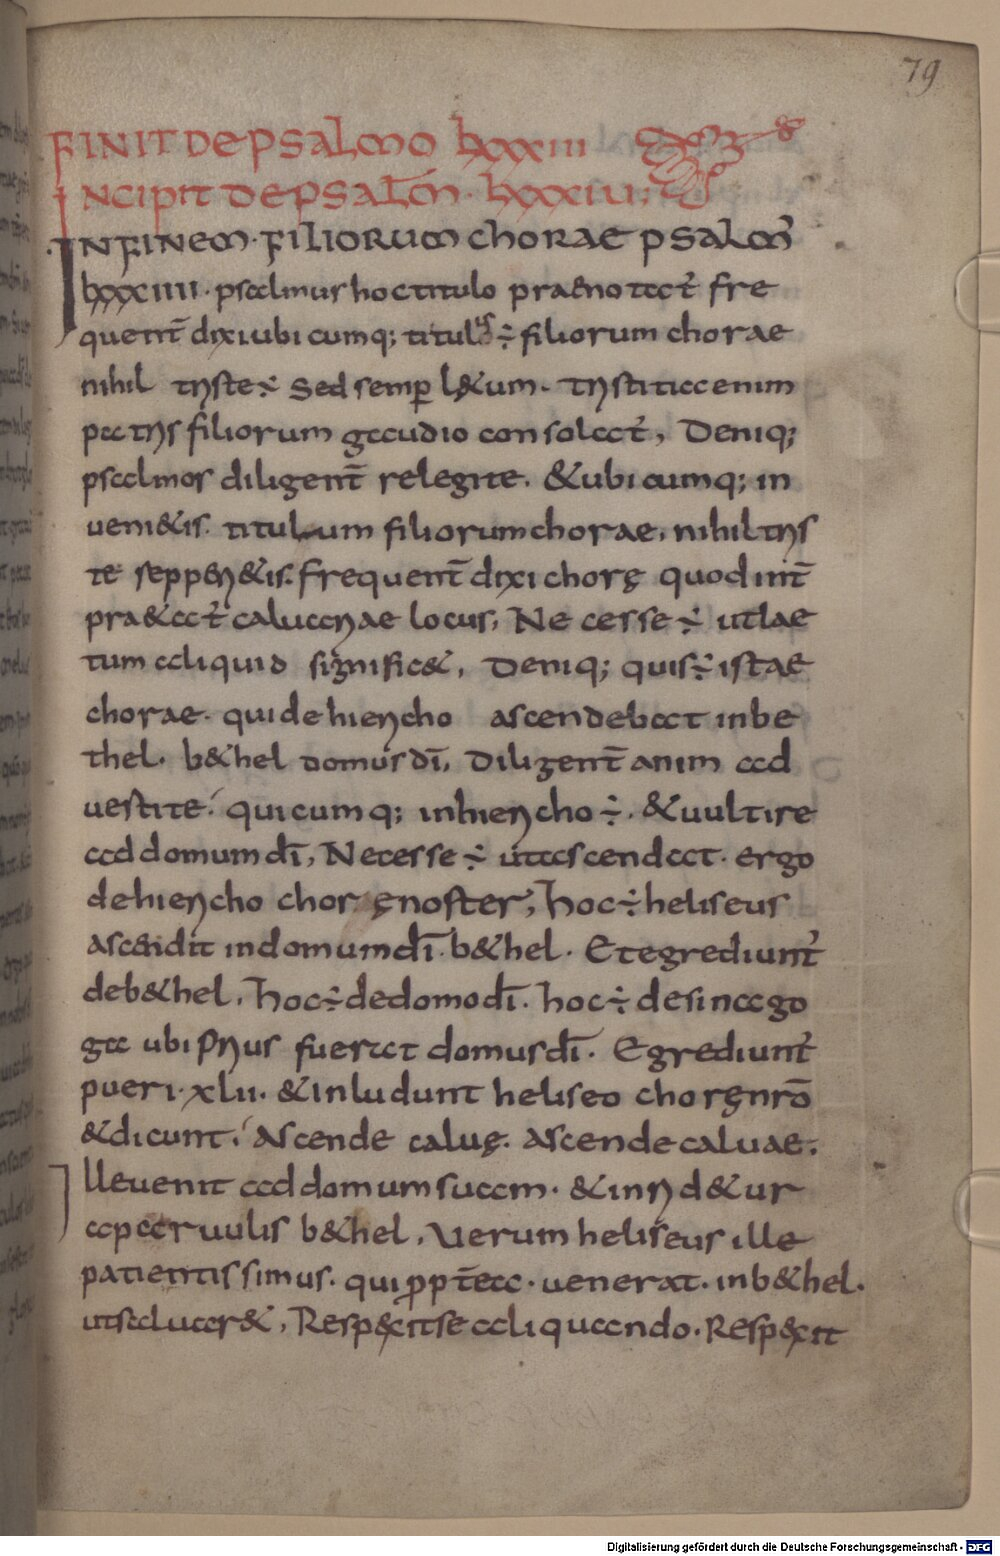 79
FINIT DE PSALMO LXXXIII
INCIPIT DE PSALM̄. LXXXIIII.
IN FINEM. FILIORUM CHORAE PSALM̄
LXXXIIII. psalmus hoc titulo praenotat̄ fre
quent̄ dixi ubicumq; titulus ÷ filiorum chorae
nihil triste ÷ sed semp̄ l&um. Tristitia enim
patris filiorum gaudio consolat̄, Deniq;
psalmos diligent̄ relegite. & ubicumq; in
veni&is. titulum filiorum chorae, nihil tris
te repperi&is. frequent̄ dixi chorę quod int̄
pr&at̄ calvariae locus, Necesse ÷ ut lae
tum aliquid signific&, Deniq; quis ÷ istae
chorae. qui de hiericho ascendebat in be
thel. b&hel domus dī, Diligent̄ anim ad
vertite. quicumq; in hiericho ÷. & vult ire
ad domum dī, Necesse ÷ ut ascendat. ergo
de hiericho chorę noster, hoc ÷ heliseus
ascendit in domum dī. b&hel. Et egrediunt̄
de b&hel, hoc ÷ de domo dī. hoc ÷ de sinago
ga ubi prius fuerat domus dī. Egrediunt̄
pueri. xlii. & inludunt heliseo chorę nrō
& dicunt. Ascende calvę. Ascende calvae.
Ille venit ad domum suam. & inrid&ur
a parvulis b&hel, Verum heliseus ille
patientissimus. qui propt̄ea. venerat. in b&hel.
ut salvar&, Respexit se aliquando. Respexit
Digitalisierung gefördert durch die Deutsche Forschungsgemeinschaft - DFG